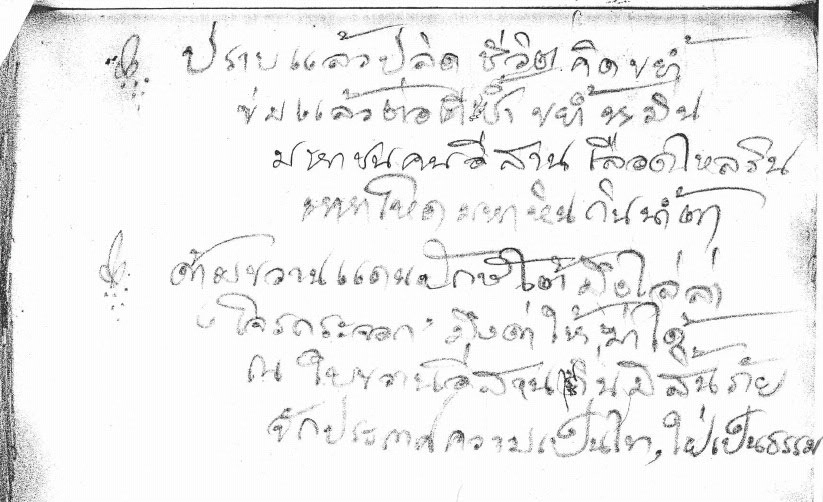 ปราบแล้วปลิดชีวิตคิดขยำ
ข่มแล้วต่อตีซ้ำขยี้
มหาชนคนอีสานเลือดไหลริน
มหาโหดมหาหินกินน้ำตา
ด้ามขวานแดนปักษ์ใต้มือไล่ล่า
โจรกระจอก มึงด่าให้ฆ่าได้
ณ ใบขวานอีสานถิ่นมิสิ้นภัย
จักประกาศความเป็นไท, ใฝ่เป็นธรรม